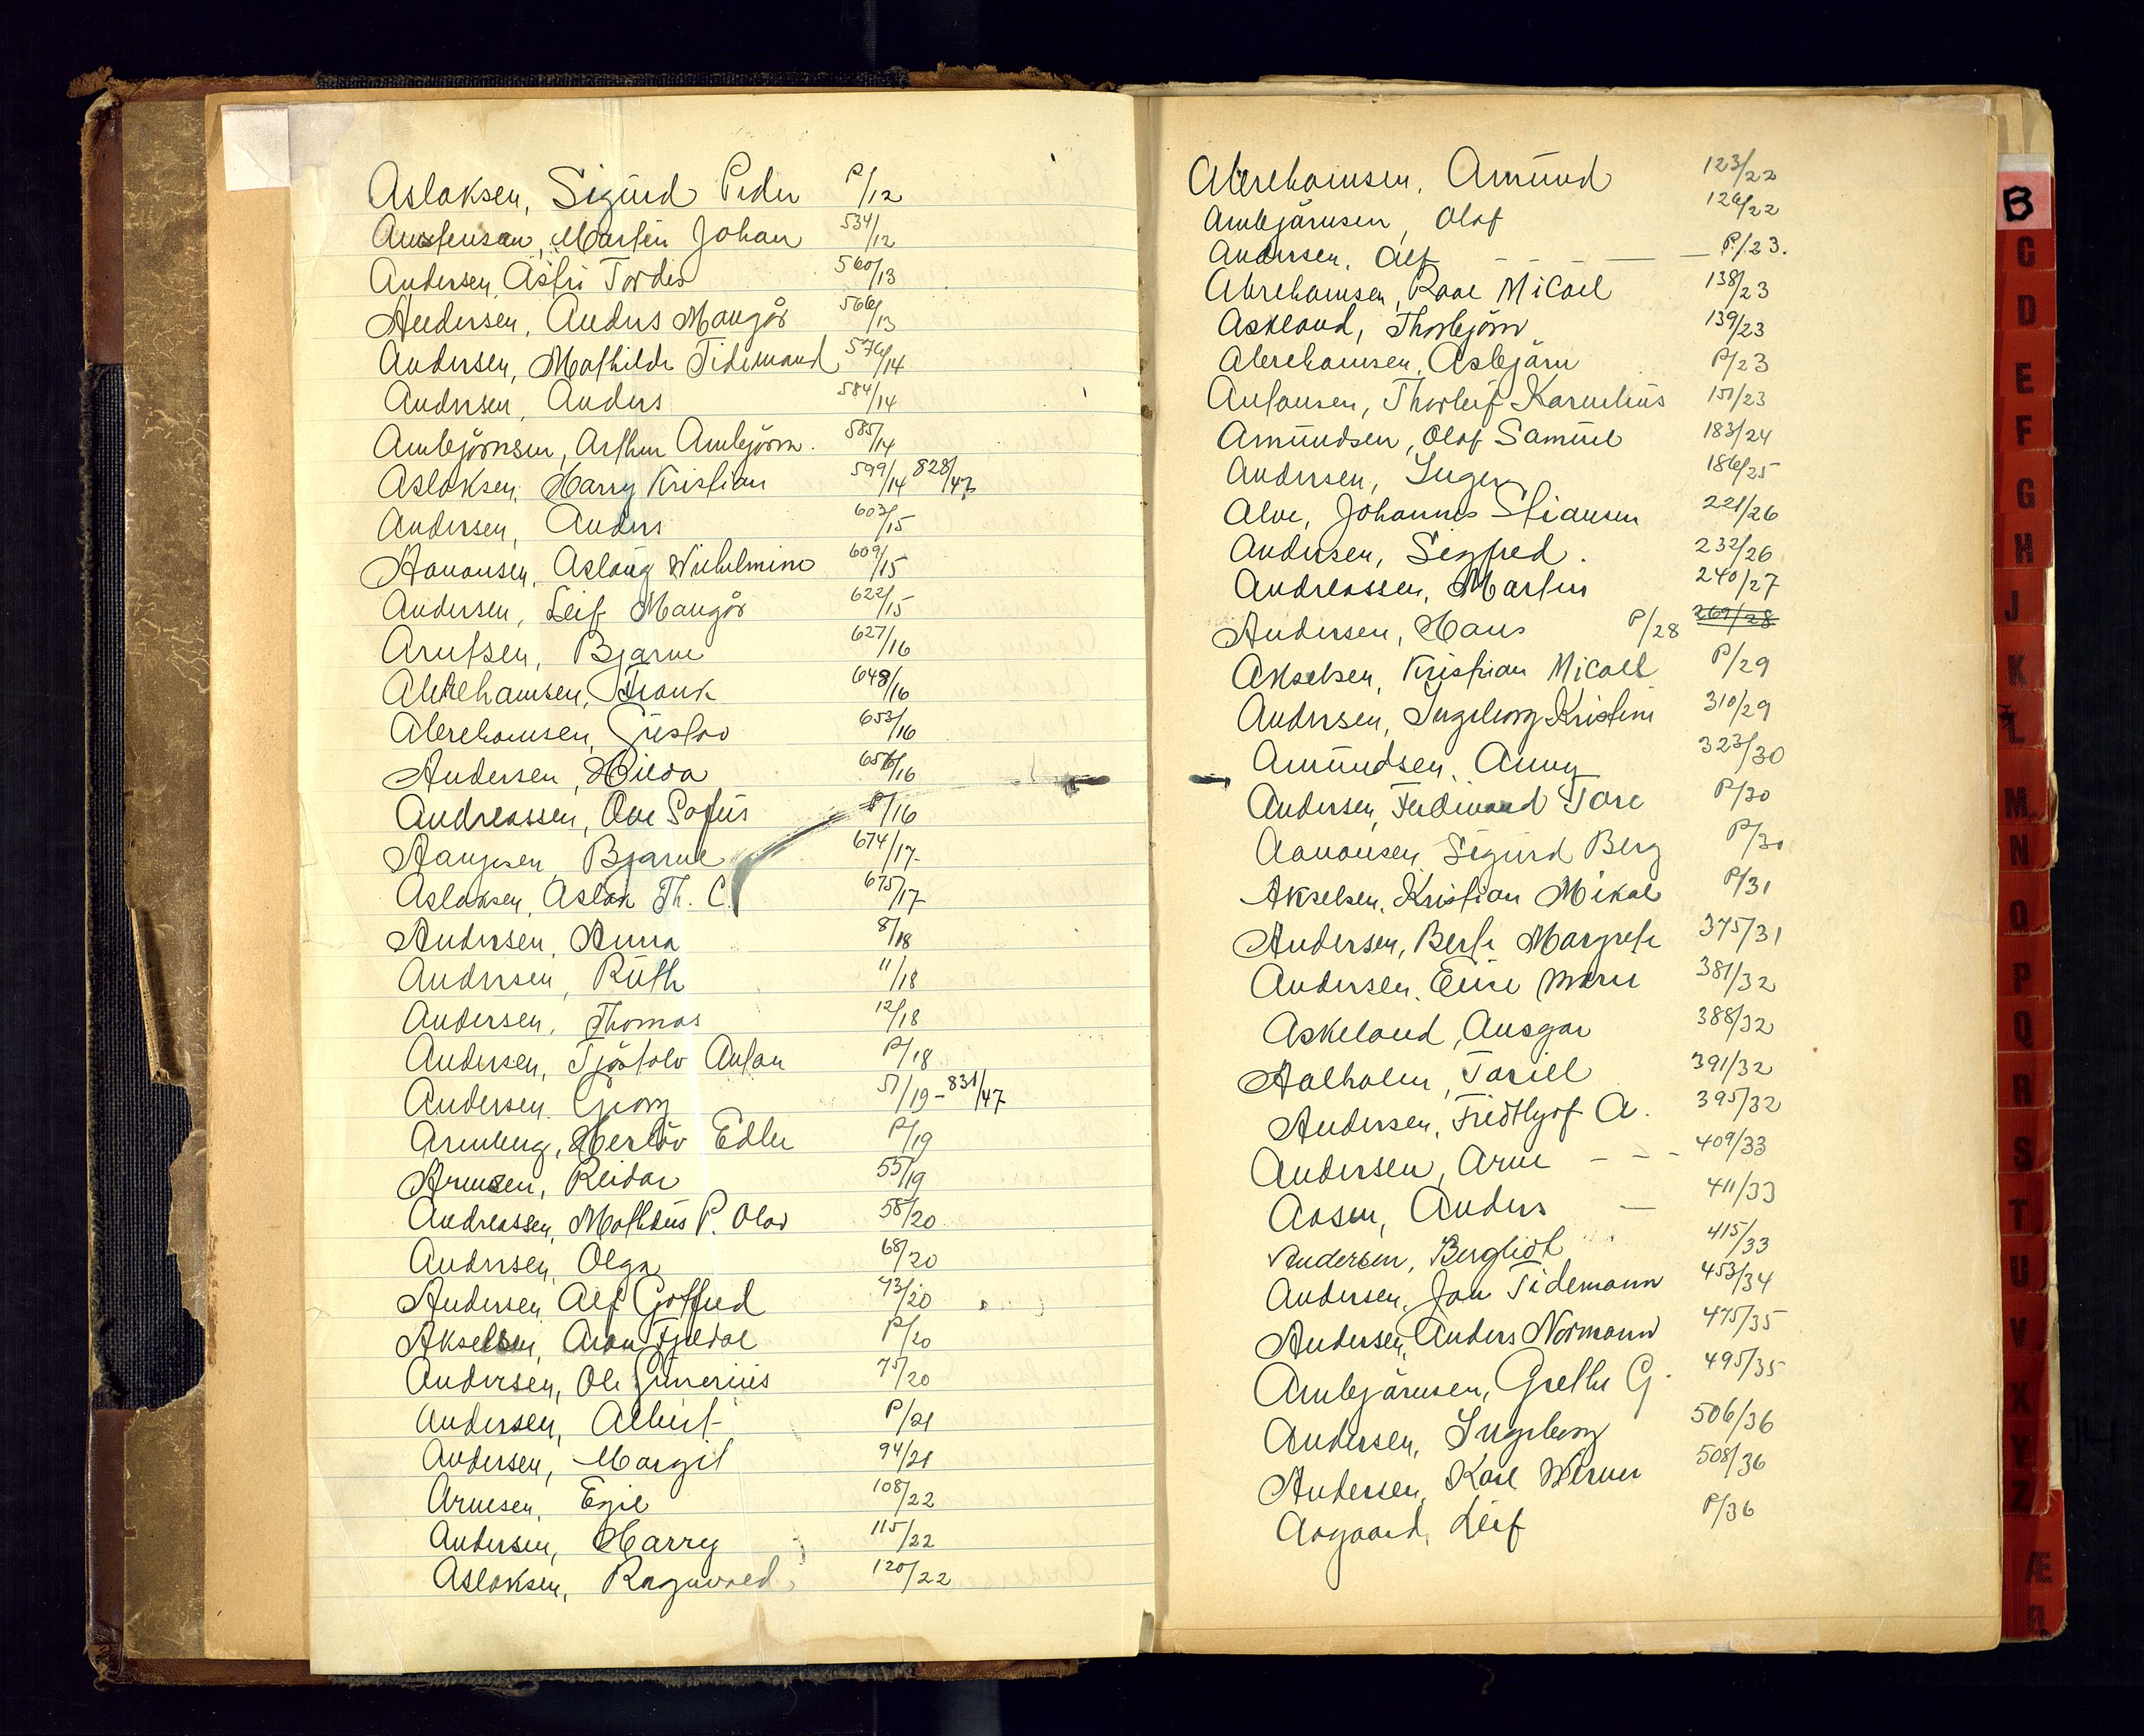 Aslaksen, Sigurd Peder P/12
Austensen, Martin Johan 534/12
Andersen, Astri Tordis 560/13
Andersen, Anders Mangår 566/13
Andersen, Mathilde Tidemand 576/14
Andersen, Anders 584/14
Ambjörnsen, Arthur Ambjörn. 585/14
Aslaksen, Harry Kristian 599/14 828/47
Andersen, Anders 603/15
Aanonsen, Aslaug Wilhelmine 609/15
Andersen, Leif Mangår 622/15
Arntsen, Bjarne 627/16
Abrehamsen, Frank 648/16
Abrehamsen, Gustav 653/16
Andersen, Hilda 656/16
Andreassen, Ove Sofus P/16
Aanjesen, Bjarne 674/17
Aslaksen, Aslak Th. C. 675/17
Andersen, Anna 8/18
Andersen, Ruth 11/18
Andersen, Thomas 12/18
Andersen, Tjöstolv Antan P/18
Andersen, Georg 51/19 - 831/47
Arenberg, Herlöv Edler P/19
Arnesen, Reidar 55/19
Andreassen, Matheus P. Olav 58/20
Andersen, Olga 68/20
Andersen, Alf Gotfred 73/20
Akselsen, Aron Fjeldal P/20
Andersen, Ole Gunerius 75/20
Andersen, Albert P/21
Andersen, Margit 94/21
Arnesen, Egil 108/22
Andersen, Harry 115/22
Aslaksen, Ragnvald 120/22
Abrehamsen, Amund 123/22
Ambjörnsen, Olaf 126/22
Andersen, Alf - - - - - P./23.
Abrehamsen, Roar Micael 138/23
Askeland, Thorbjörn 139/23
Abrehamsen, Asbjörn P/23
Antonsen, Thorleif Kornelius 151/23
Amundsen, Olaf Samuel 183/24
Andersen, Inger 186/25
Alve, Johannes Stiansen 221/26
Andersen, Sigfred. 232/26
Andreassen, Martin 240/27
Andersen, Hans P/28 269/28
Akselsen, Kristian Micael P/29
Andersen, Ingeborg Kristine 310/29
Amundsen, Anny 323/30
Andersen, Ferdinand Tore P/30
Aanonsen, Sigurd Berg P/30
Akselsen, Kristian Mikal P/31
Andersen, Berte Margrete 375/31
Andersen, Elise Marie 381/32
Askeland, Ansgar 388/32
Aalholm, Toriel 391/32
Andersen, Fridtjof A. 395/32
Andersen, Arne - - - 409/33
Aasen, Anders - 411/33
Andersen, Bergliot 415/33
Andersen, Jan Tidemann 453/34
Andersen, Anders Normann 475/35
Ambjörnsen, Grethe G. 495/35
Andersen, Ingeborg 506/36
Andersen, Kåre Werner 508/36
Aagaard, Leif P/36
B
C
D
E
F
G
H
J
K
L
M
N
O
P
Q
R
S
T
U
V
X
Y
Z
Æ
Ø